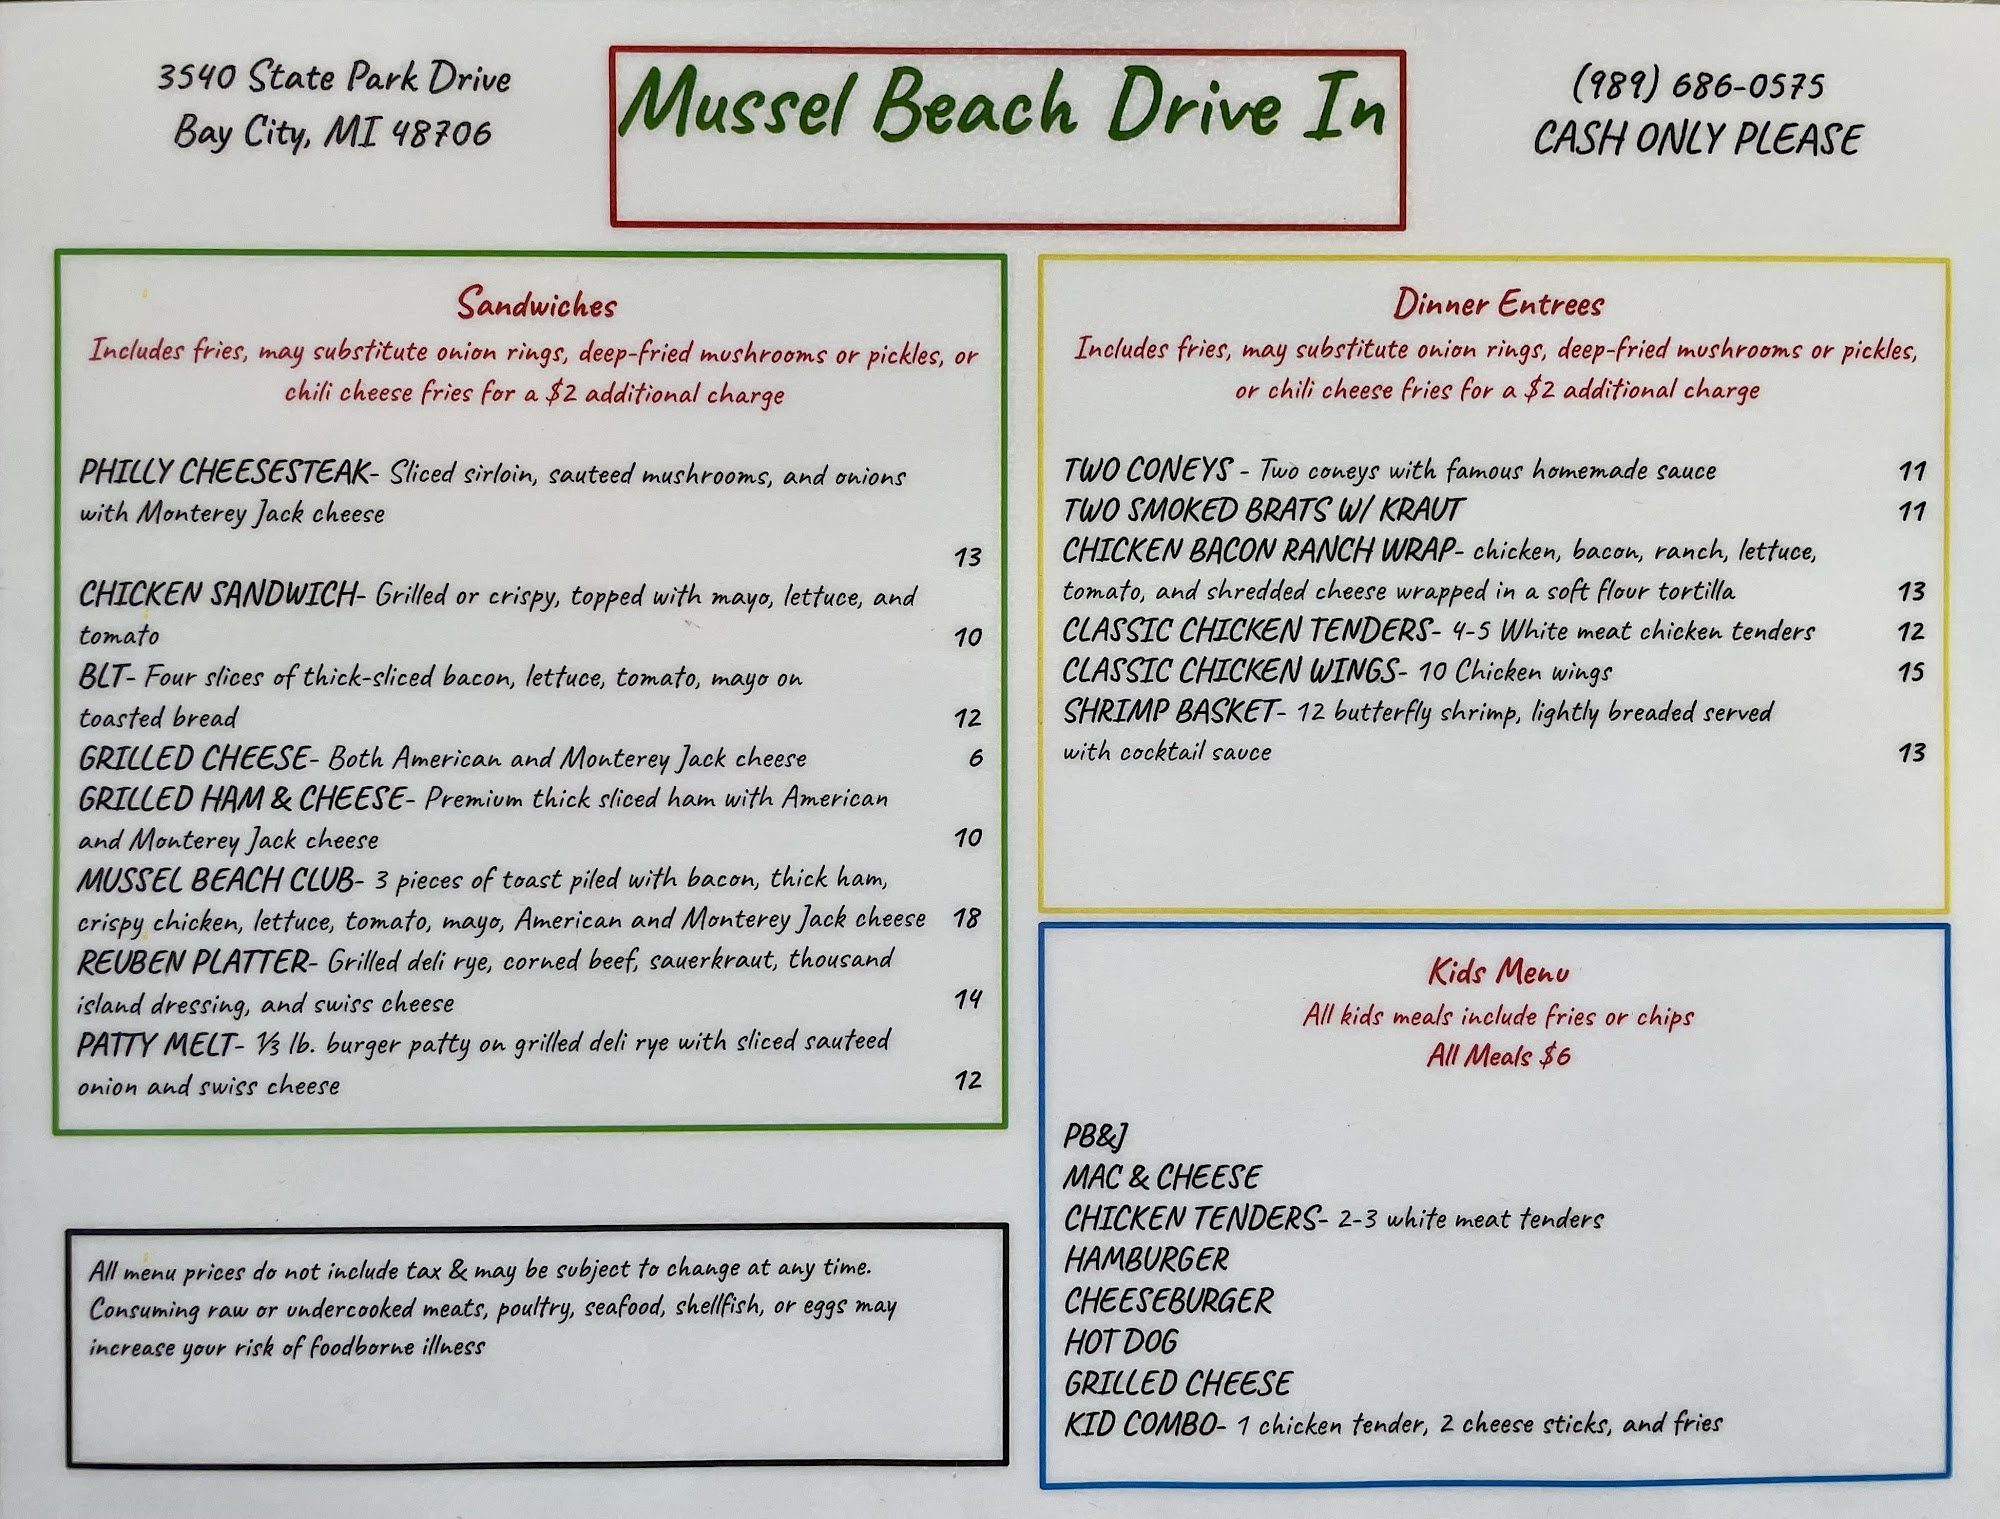 3540 State Park Drive
Bay City, MI 48706
Mussel Beach Drive In
(989) 686-0575
CASH ONLY PLEASE
Sandwiches
Includes fries, may substitute onion rings, deep-fried mushrooms or pickles, or
chili cheese fries for a $2 additional charge
PHILLY CHEESESTEAK- Sliced sirloin, sauteed mushrooms, and onions
with Monterey Jack cheese
13
CHICKEN SANDWICH- Grilled or crispy, topped with mayo, lettuce, and
tomato 10
BLT- Four slices of thick-sliced bacon, lettuce, tomato, mayo on
toasted bread 12
GRILLED CHEESE- Both American and Monterey Jack cheese 6
GRILLED HAM & CHEESE- Premium thick sliced ham with American
and Monterey Jack cheese 10
MUSSEL BEACH CLUB- 3 pieces of toast piled with bacon, thick ham,
crispy chicken, lettuce, tomato, mayo, American and Monterey Jack cheese 18
REUBEN PLATTER- Grilled deli rye, corned beef, sauerkraut, thousand
island dressing, and swiss cheese 14
PATTY MELT- ⅓ lb. burger patty on grilled deli rye with sliced sauteed
onion and swiss cheese 12
All menu prices do not include tax & may be subject to change at any time.
Consuming raw or undercooked meats, poultry, seafood, shellfish, or eggs may
increase your risk of foodborne illness
Dinner Entrees
Includes fries, may substitute onion rings, deep-fried mushrooms or pickles,
or chili cheese fries for a $2 additional charge
TWO CONEYS - Two coneys with famous homemade sauce 11
TWO SMOKED BRATS W/ KRAUT 11
CHICKEN BACON RANCH WRAP- chicken, bacon, ranch, lettuce,
tomato, and shredded cheese wrapped in a soft flour tortilla 13
CLASSIC CHICKEN TENDERS- 4-5 White meat chicken tenders 12
CLASSIC CHICKEN WINGS- 10 Chicken wings 15
SHRIMP BASKET- 12 butterfly shrimp, lightly breaded served
with cocktail sauce 13
Kids Menu
All kids meals include fries or chips
All Meals $6
PB&J
MAC & CHEESE
CHICKEN TENDERS- 2-3 white meat tenders
HAMBURGER
CHEESEBURGER
HOT DOG
GRILLED CHEESE
KID COMBO- 1 chicken tender, 2 cheese sticks, and fries